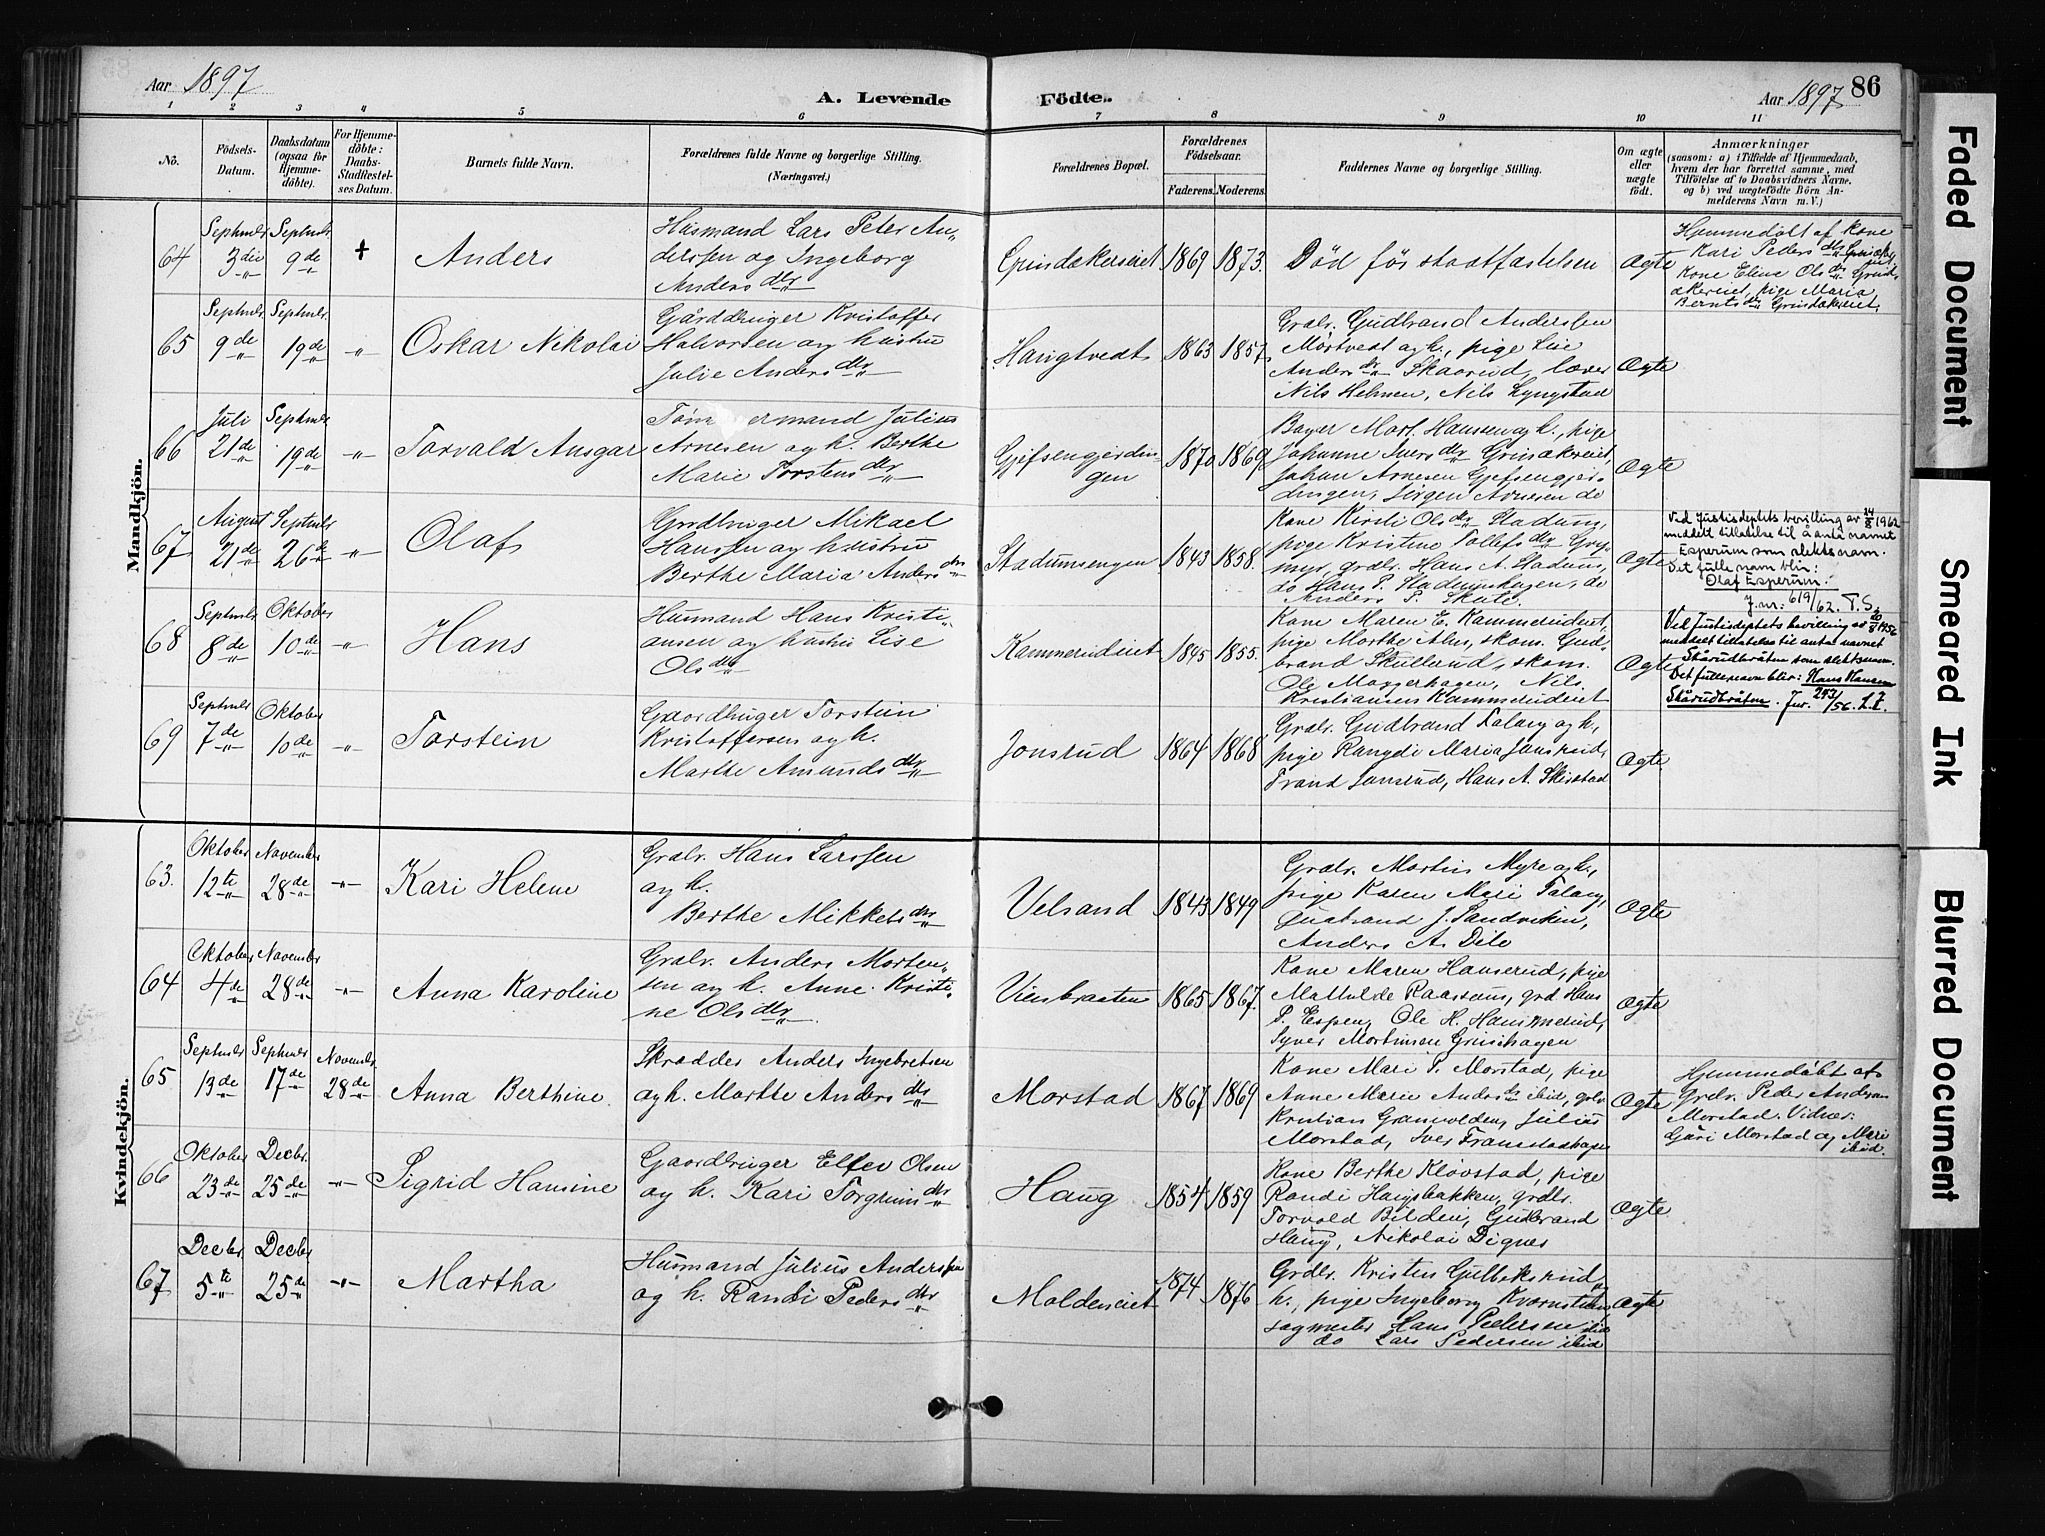 Aar 1897
A. Levende Födte.
Aar 1897
86
1 2 3 4 5 6 7 8 9 10 11
No.
Födsels-
Datum.
Daabsdatum
(ogsaa for
Hjemme-
döbte).
For Hjemme-
döbte:
Daabs-
Stadfæstel-
ses Datum.
Barnets fulde Navn.
Forældrenes fulde Navne og borgerlige Stilling.
(Næringsvei.)
Forældrenes Bopæl.
Forældrenes
Födselsaar.
Faderens. Moderens.
Faddernes Navne og borgerlige Stilling.
Om ægte
eller
uægte
födt.
Anmærkninger
(saasom: a) i Tilfælde af Hjemmedaab,
hvem der har forrettet samme, med
Tilföielse af to Daabsvidners Navne,
og b) ved uægtefödte Börn An-
melderens Navn m. V.)
Mandkjön.
64
Septmbr
3die
Septmbr
9de
+
Anders
Husmand Lars Peter An-
derssen og Ingeborg
Anders dtr
Grindakereiet
1869
1873.
Död før staatfæstelsen
Ægte
Hjemmedöbt af Kone
Kari Peders dtr
Kone Eline Ols dtr Grind-
akereiet, pige Maria
Bernts dtr Grindakereiet
65
Septmbr
9de
Septmbr
19de
Oskar Nikolai
Gårdbruger Kristoffer
Halvorsen og hustru
Julie Anders dtr
Haugtvedt
1863
1857
Grdbr. Gudbrand Anderssen
Mørtvedt og h., pige Lise
Anders dtr Skaarud, lærer
Nils Helmen, Nils Lyngstad
Ægte
66
Juli
21de
Septmbr
19de
Torvald Ansgar
Tøm ermand Julius
Arnesen og h. Berthe
Marie Torstens dtr
Gjefsengjerdin-
gen
1870
1869
Hansen og h., pige
Johanne Ivers dtr Grindakereiet,
Johan Arnesen Gjefsengjer-
dingen, Jörgen Arnesen do
Ægte
67
August
21de
Septmbr
26de
Olaf
Grdbruger Mikael
Hanssen og hustru
Berthe Maria Anders dtr
Stadumsengen
1843
1858.
Kone Kirsti Ols dtr Stadum,
pige Kristine Tollefs dtr
grdbr. Hans A. Stadum,
do Hans P. Stadumshagen, do
Anders P. Skute.
Ægte
Ved Justisdeptets bevilling av 24/8 1962
meddelt tillatelse til å anta navnet
Esperum som slektsnavn.
Det fulle navn blir:
Olaf Esperum.
J.nr. 619/62. T.S.
68
Septmbr
8de
Oktober
10de
Hans
Husmand Hans Kristi-
ansen og hustru Lise
Ols dtr
Kammerudeiet
1845
1855.
Kone Maren E. Kammerudeiet,
pige Marthe skom. Gud-
brand Skullerud, skom.
Ole Moggerhagen, Nils
Kristiansen Kammerudeiet
Ægte
Ved Justisdeptets bevilling av 1956
meddelt tillatelse til anta navnet
Skårudbråten som slektsnavn.
Det fulle navn blir: Hans Hansen
Skårudbråten. Jnr. 243/56.
69
Septmbr
7de
Oktober
10de
Torstein
Gaardbruger Torstein
Kristoffersen og h.
Marthe Amunds dtr
Jonsrud
1864
1868
Grdbr. Gudbrand Talang og h.
pige Rangdi Maria Jonsrud,
Trond Jonsrud, Hans A. Skiastad
Ægte
Kvindekjön.
63.
Oktober
12te
November
28de
Kari Helene
Grdbr. Hans Larssen
og h.
Berthe Mikkels dtr
Velsand
1843
1849
Grdbr. Martin Myre og h.,
pige Karen Mari Talang,
J. Sandviken,
Anders A. Dile
Ægte
64
Oktober
4de
November
28de
Anna Karoline
Grdbr. Anders Morten-
sen og h. Anne Kristi-
ne Ols dtr
Viesbraaten
1865
1867.
Kone Maren Hanserud, pige
Mathilde Raassum, grd Hans
P. Espen, Ole H. Hansmerud,
Syver Mortinsen Grinihagen
Ægte
65
Septmbr
13de
Septmbr
17de
November
28de
Anna Berthine.
Skrædder Anders Ingebretsen
og h. Marthe Anders dtr
Morstad
1867
1869
Kone Mari P. Morstad, pige
Anne Marie Anders dtr ibid, grdbr.
Kristian Granvolden, Julius
Morstad, Iver
Ægte
Hjemmedöbt af
Grdbr. Peder Andersen
Morstad. Vidner:
Guri Morstad og Mari
ibid.
66
Oktober
23de
Decbr.
25de
Sigrid Hansine
Gaardbruger Elfev Olsen
og h. Kari Torgrims dtr
Haug
1854
1859
Kone Berthe Klövstad, pige
Randi Haugsbakken, grdbr.
Torvald Bilden, Gudbrand
Haug, Nikolai Dignes
Ægte
67
Decbr.
5te
Decbr
25de
Martha
Husmand Julius Anderssen
og h. Randi Peders dtr
Moldeneiet
1874
1876
Grdbr. Kristen Gulbeksrud
h., pige Ingeborg Kvernstuen,
sagmester Hans Pedersen ibid
do Lars Pedersen ibid
Ægte
Faded Document
Smeared Ink
Blurred Document